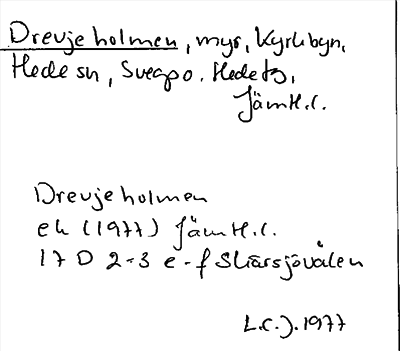 Drevjeholmen, myr, Kyrkbyn,
Hede sn, Svegs o. Hede tg,
Jämtl.l.
Drevjeholmen
ek (1977) Jämtl.l.
17 D 2-3 e-f Skärsjövålen
L.C.J. 1977